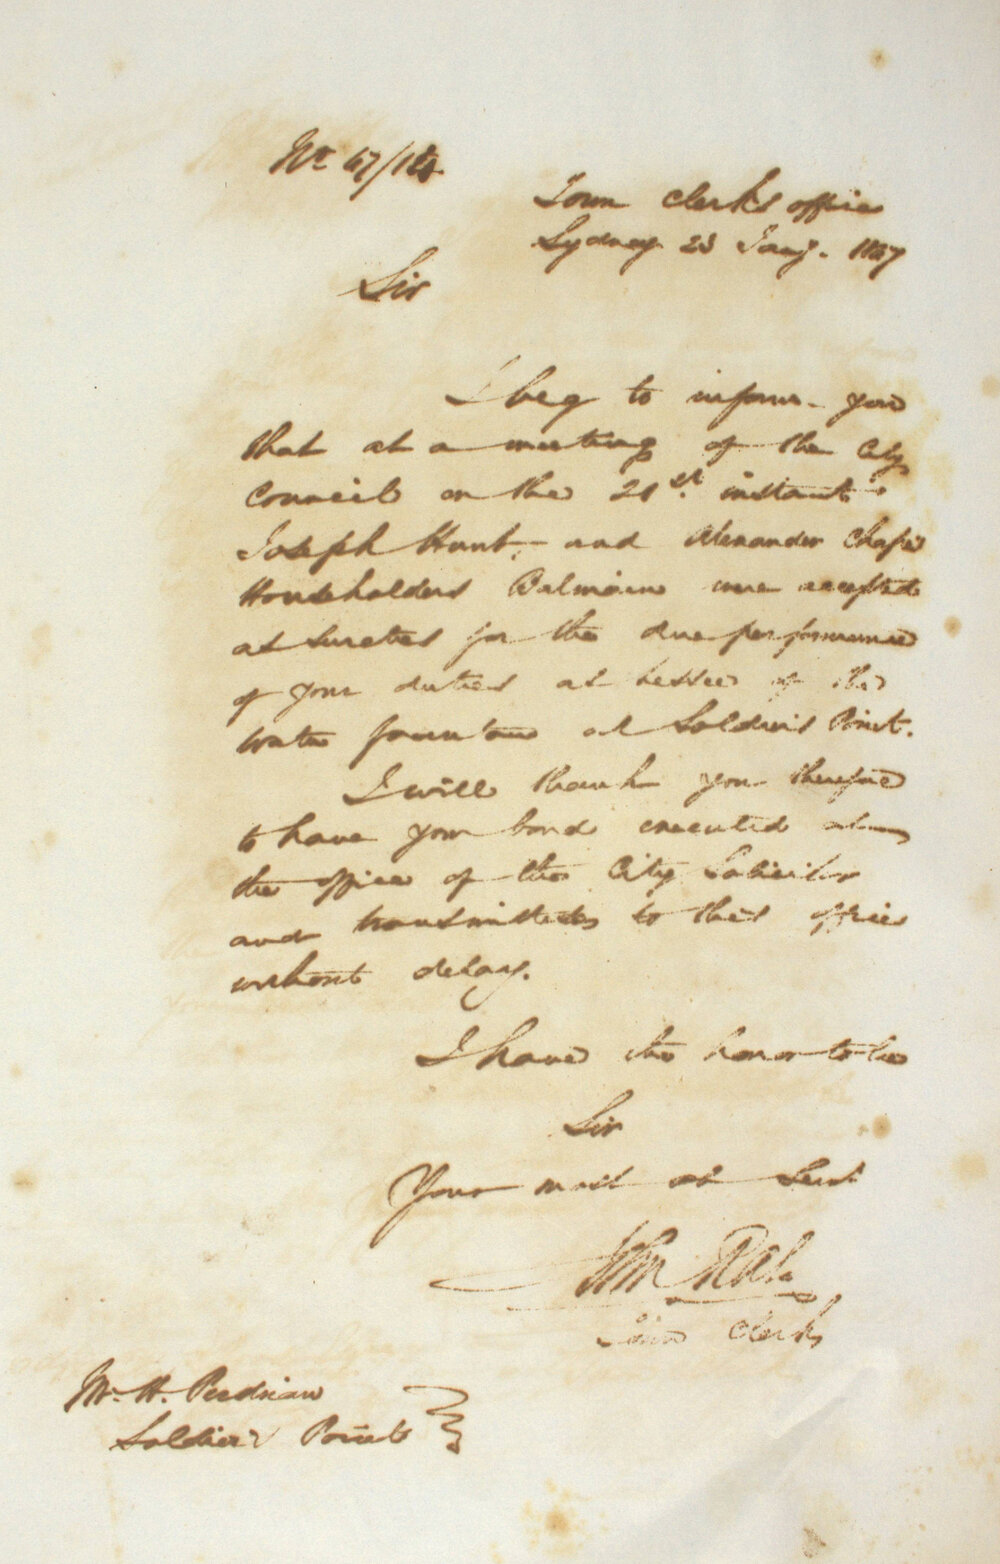 Town Clerks office
Sydney 23 Jany. 1847
Sir
I beg to inform you
that at a meeting of the City
Council on the 21st. instant
Joseph Hunt, and Alexander
Householders Balmain were accepted
as sureties for the due performance
of your duties as Lessee of the
water fountain at Soldiers Point.
I will thank you therefore
to have your bond executed at
the office of the City Solicitor
and transmitted to this office
without delay.
I have the honor to be
Sir
Your most ob Servt
John
Town Clerk
Mr. H. Perdriau
Soldiers Point